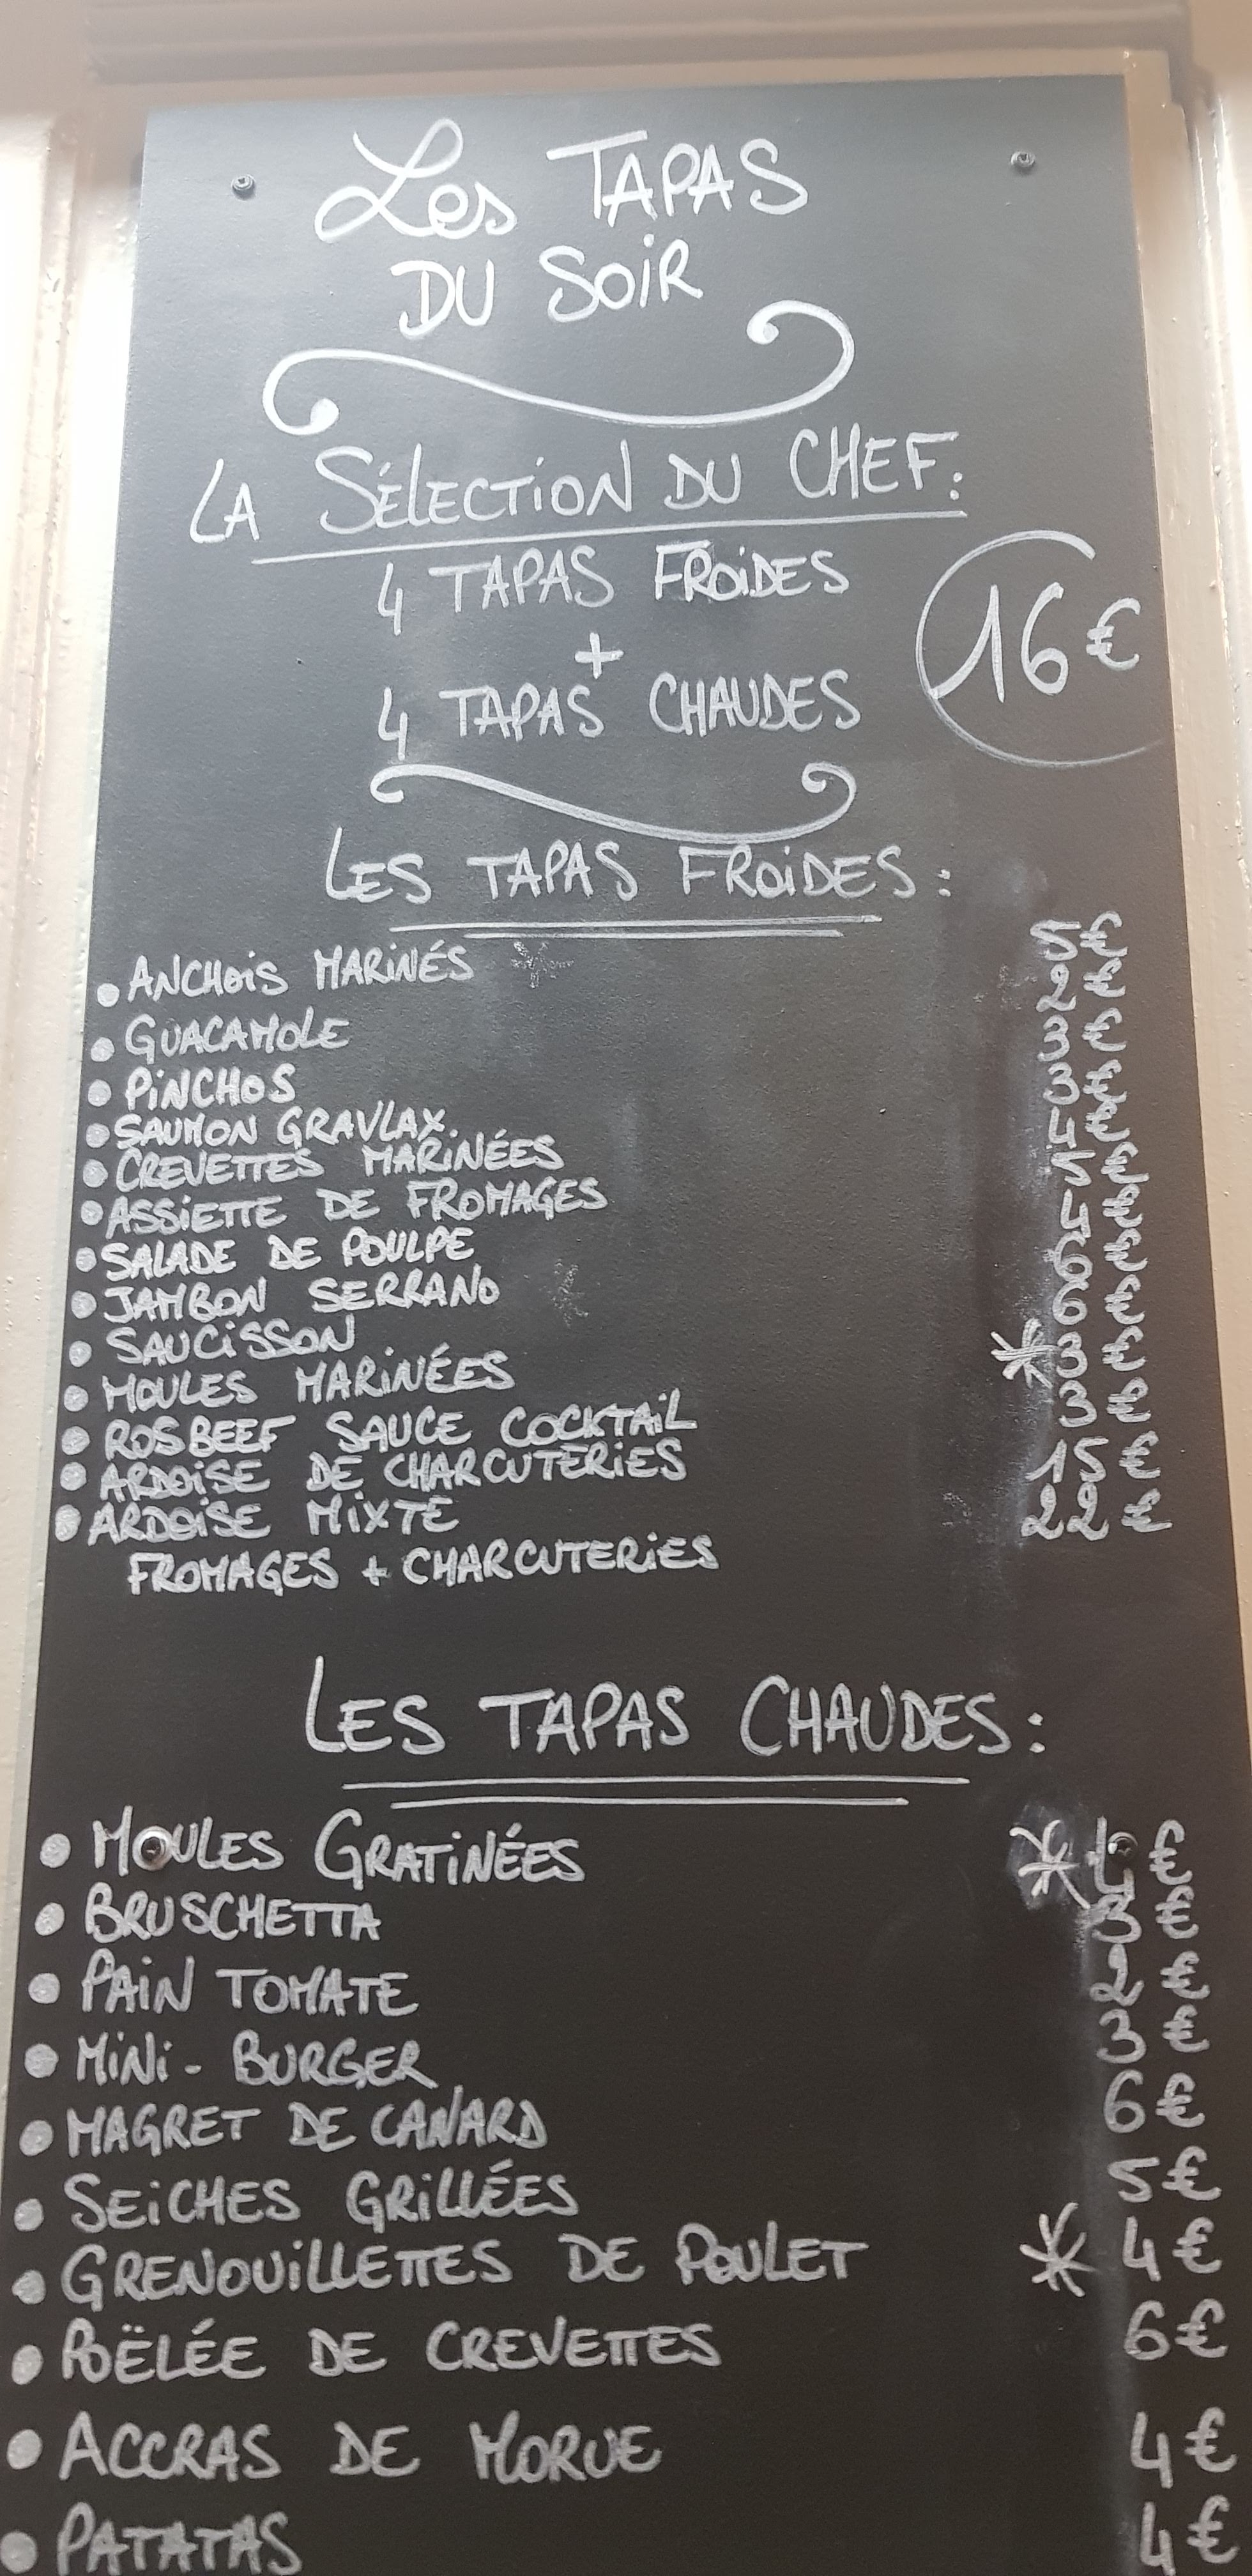 Les TAPAS
DU SOIR
LA SÉLECTION DU CHEF:
4 TAPAS FROIDES
+
4 TAPAS CHAUDES
16€
LES TAPAS FROIDES:
• ANCHOIS MARINÉS 5€
• GUACAMOLE 2€
• PINCHOS 3€
• SAUMON GRAVLAX. 3€
• CREVETTES MARINÉES 4€
• ASSIETTE DE FROMAGES 5€
• SALADE DE POULPE 4€
• JAMBON SERRANO 6€
• SAUCISSON 6€
• MOULES MARINÉES * 3€
• ROSBEEF SAUCE COCKTAIL 3€
• ARDOISE DE CHARCUTERIES 15€
• ARDOISE MIXTE 22€
FROMAGES + CHARCUTERIES
LES TAPAS CHAUDES:
• MOULES GRATINÉES * 4€
• BRUSCHETTA 3€
• PAIN TOMATE 2€
• MINI-BURGER 3€
• MAGRET DE CANARD 6€
• SEICHES GRILLÉES 5€
• GRENOUILLETTES DE POULET * 4€
• POËLÉE DE CREVETTES 6€
• ACCRAS DE MORUE 4€
• PATATAS 4€